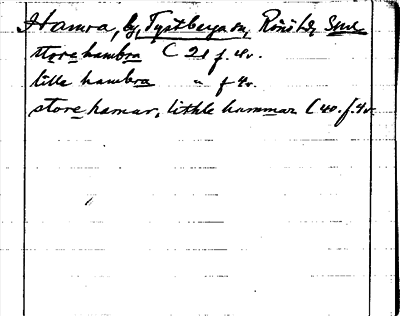 Hamra, by, Tystberga sn, Rönö hd, Sml.
store hambra ( 21 f. 4v.
litle hambra " f 4v.
store hamar, lithle hammar ( 40. f. 4v.